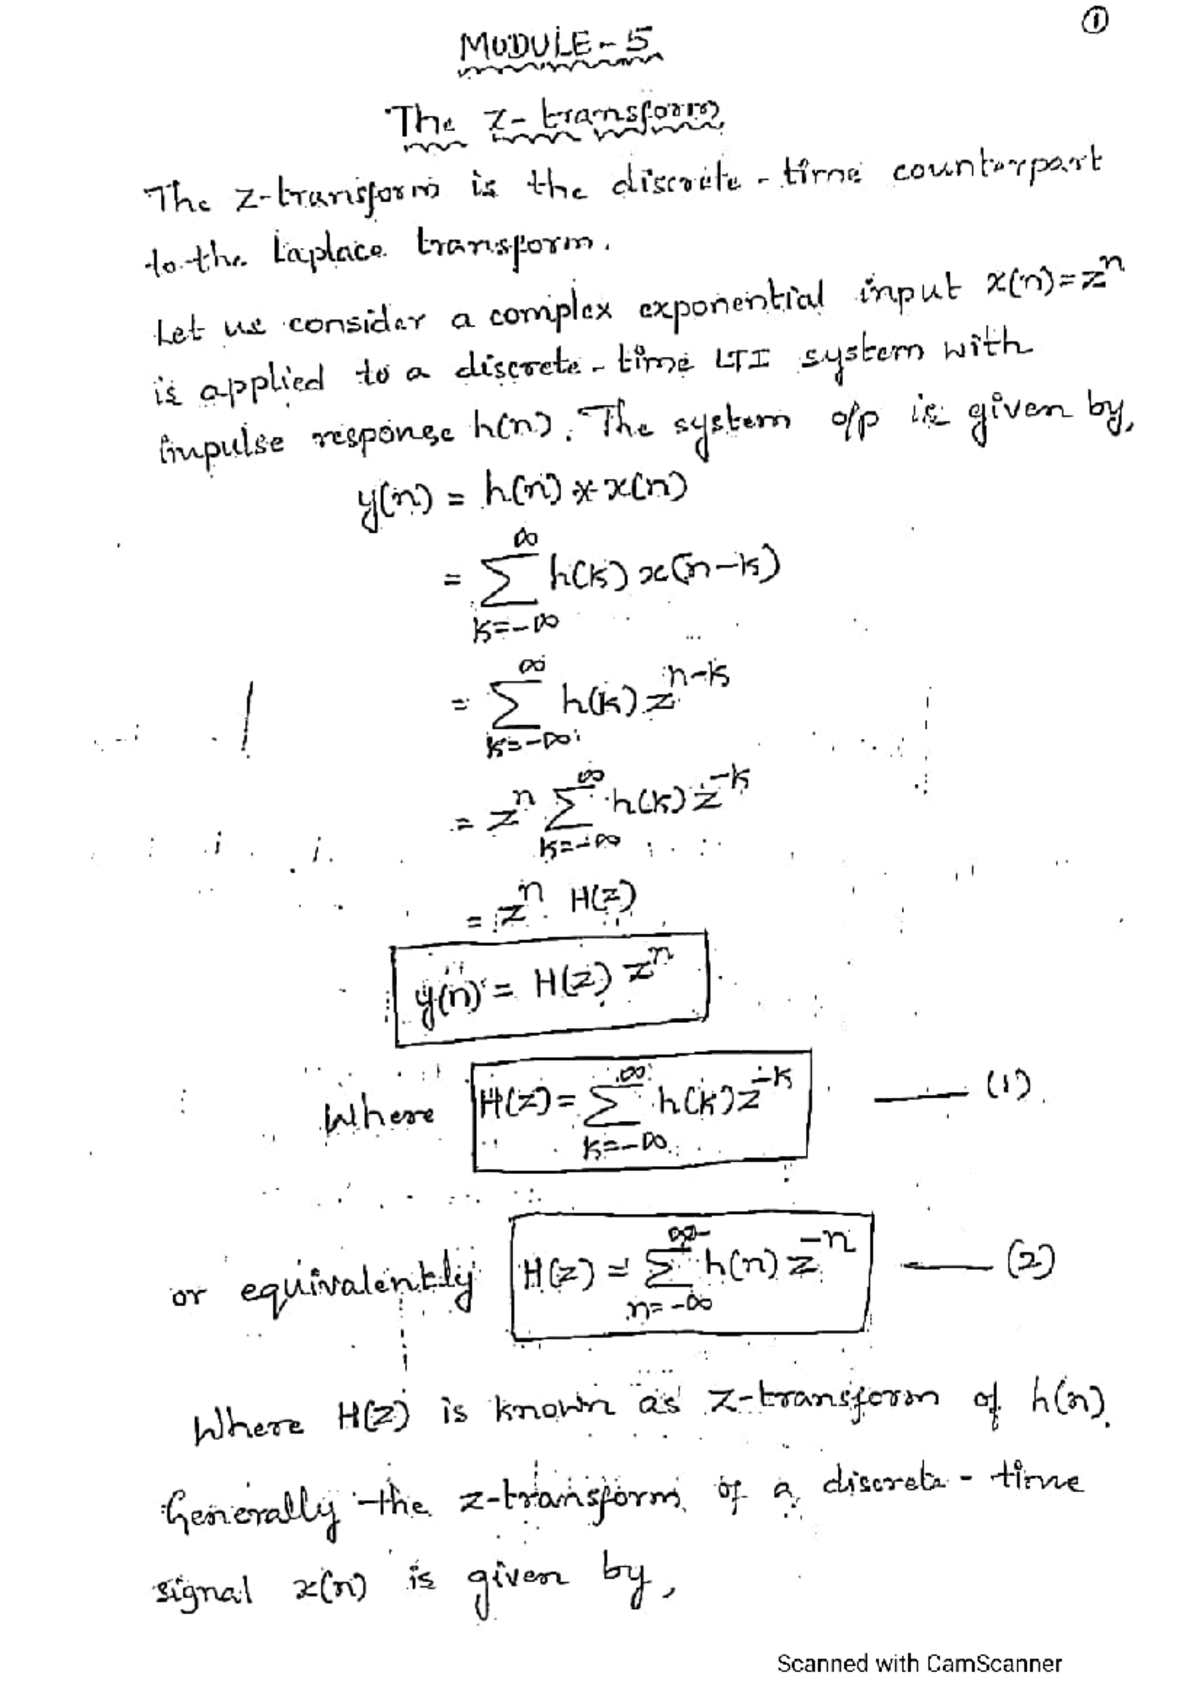 ①
MODULE-5
The z-transform
The z-transform is the discrete-time counterpart
to the Laplace transform.
Let us consider a complex exponential input x(n)=zⁿ
is applied to a discrete-time LTI system with
impulse response h(n). The system o/p is given by,
y(n) = h(n) * x(n)
= ∑_{k=-∞}^{∞} h(k) x(n-k)
= ∑_{k=-∞}^{∞} h(k) z^{n-k}
= zⁿ ∑_{k=-∞}^{∞} h(k) z^{-k}
= zⁿ H(z)
y(n) = H(z) zⁿ
Where H(z) = ∑_{k=-∞}^{∞} h(k) z^{-k} — (1)
or equivalently H(z) = ∑_{n=-∞}^{∞} h(n) z^{-n} — (2)
Where H(z) is known as z-transform of h(n).
Generally the z-transform of a discrete-time
signal x(n) is given by,
Scanned with CamScanner